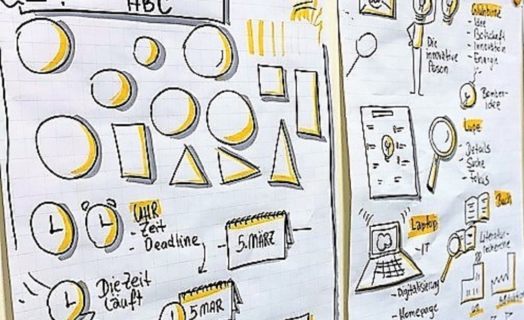 ABC
UHR
- Zeit
- Deadline
5. MÄRZ
Die Zeit
läuft
5 MAR
Die
innovative
Person
Glühbirne
- Idee
- Botschaft
- Innovation
- Energie
Lupe
- Details
- Suche
- Fokus
Buch
Laptop
- IT
- Digitalisierung
- Homepage
Literatur-
recherche